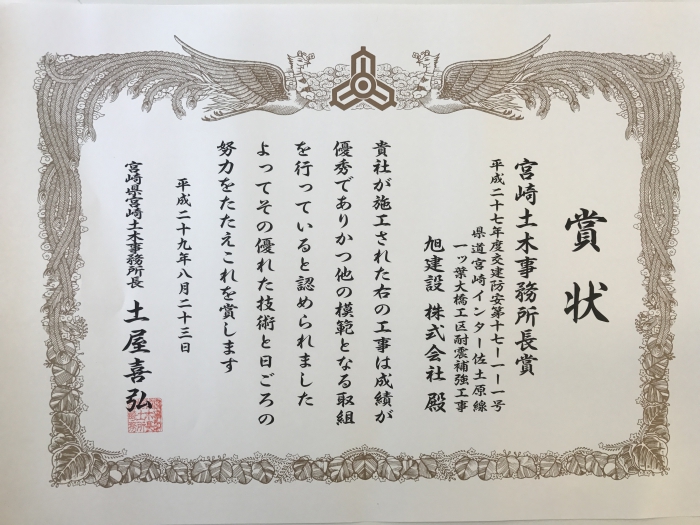 賞状
宮崎土木事務所長賞
平成二十七年度交建防安第十七ー一ー一号
県道宮崎インター佐土原線
一ッ葉大橋工区耐震補強工事
旭建設 株式会社 殿
貴社が施工された右の工事は成績が
優秀でありかつ他の模範となる取組
を行っていると認められました
よってその優れた技術と日ごろの
努力をたたえこれを賞します
平成二十九年八月二十三日
宮崎県宮崎土木事務所長 土屋喜弘